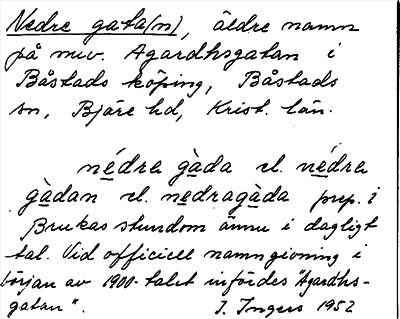 Nedre gata(n), äldre namn
på nuv. Agardhsgatan i
Båstads köping, Båstads
sn, Bjäre hd, Krist. län.
nédra gàda el. nédra
gàdan el. nedragàda prep. i
Brukas stundom ännu i dagligt
tal. Vid officiell namngivning i
början av 1900-talet infördes "Agardhs-
gatan".
I. Ingers 1952